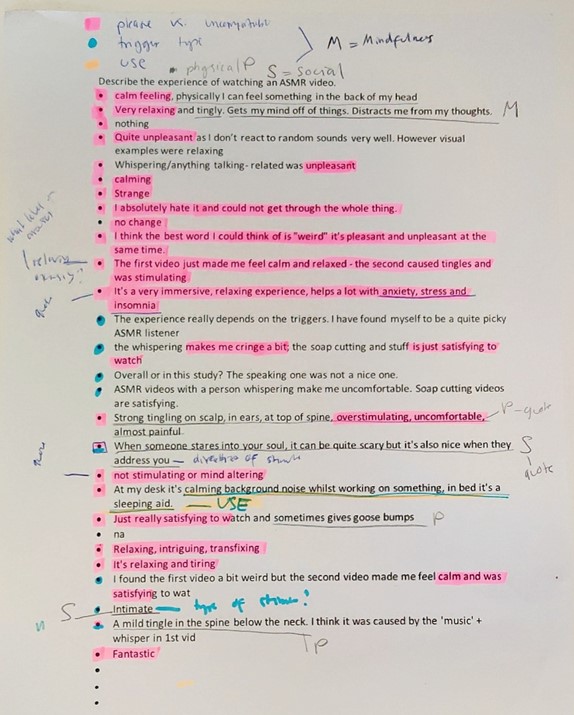 please vs. uncomfortable
trigger type
M = Mindfulness
use
physical P S = Social
Describe the experience of watching an ASMR video.
• calm feeling, physically I can feel something in the back of my head
• Very relaxing and tingly. Gets my mind off of things. Distracts me from my thoughts. M
• nothing
• Quite unpleasant as I don't react to random sounds very well. However visual
examples were relaxing
• Whispering/anything talking- related was unpleasant
• calming
• Strange
• I absolutely hate it and could not get through the whole thing.
• no change
• I think the best word I could think of is "weird" it's pleasant and unpleasant at the
same time.
• The first video just made me feel calm and relaxed - the second caused tingles and
was stimulating
• It's a very immersive, relaxing experience, helps a lot with anxiety, stress and
insomnia
quote
• The experience really depends on the triggers. I have found myself to be a quite picky
ASMR listener
• the whispering makes me cringe a bit; the soap cutting and stuff is just satisfying to
watch
• Overall or in this study? The speaking one was not a nice one.
• ASMR videos with a person whispering make me uncomfortable. Soap cutting videos
are satisfying.
• Strong tingling on scalp, in ears, at top of spine, overstimulating, uncomfortable, P - quote
almost painful.
• When someone stares into your soul, it can be quite scary but it's also nice when they S
address you
quote
• not stimulating or mind altering
• At my desk it's calming background noise whilst working on something, in bed it's a
sleeping aid. — USE
• Just really satisfying to watch and sometimes gives goose bumps P
• na
• Relaxing, intriguing, transfixing
• It's relaxing and tiring
• I found the first video a bit weird but the second video made me feel calm and was
satisfying to wat
S • Intimate — type of
• A mild tingle in the spine below the neck. I think it was caused by the 'music' +
whisper in 1st vid P
• Fantastic
•
•
•
•